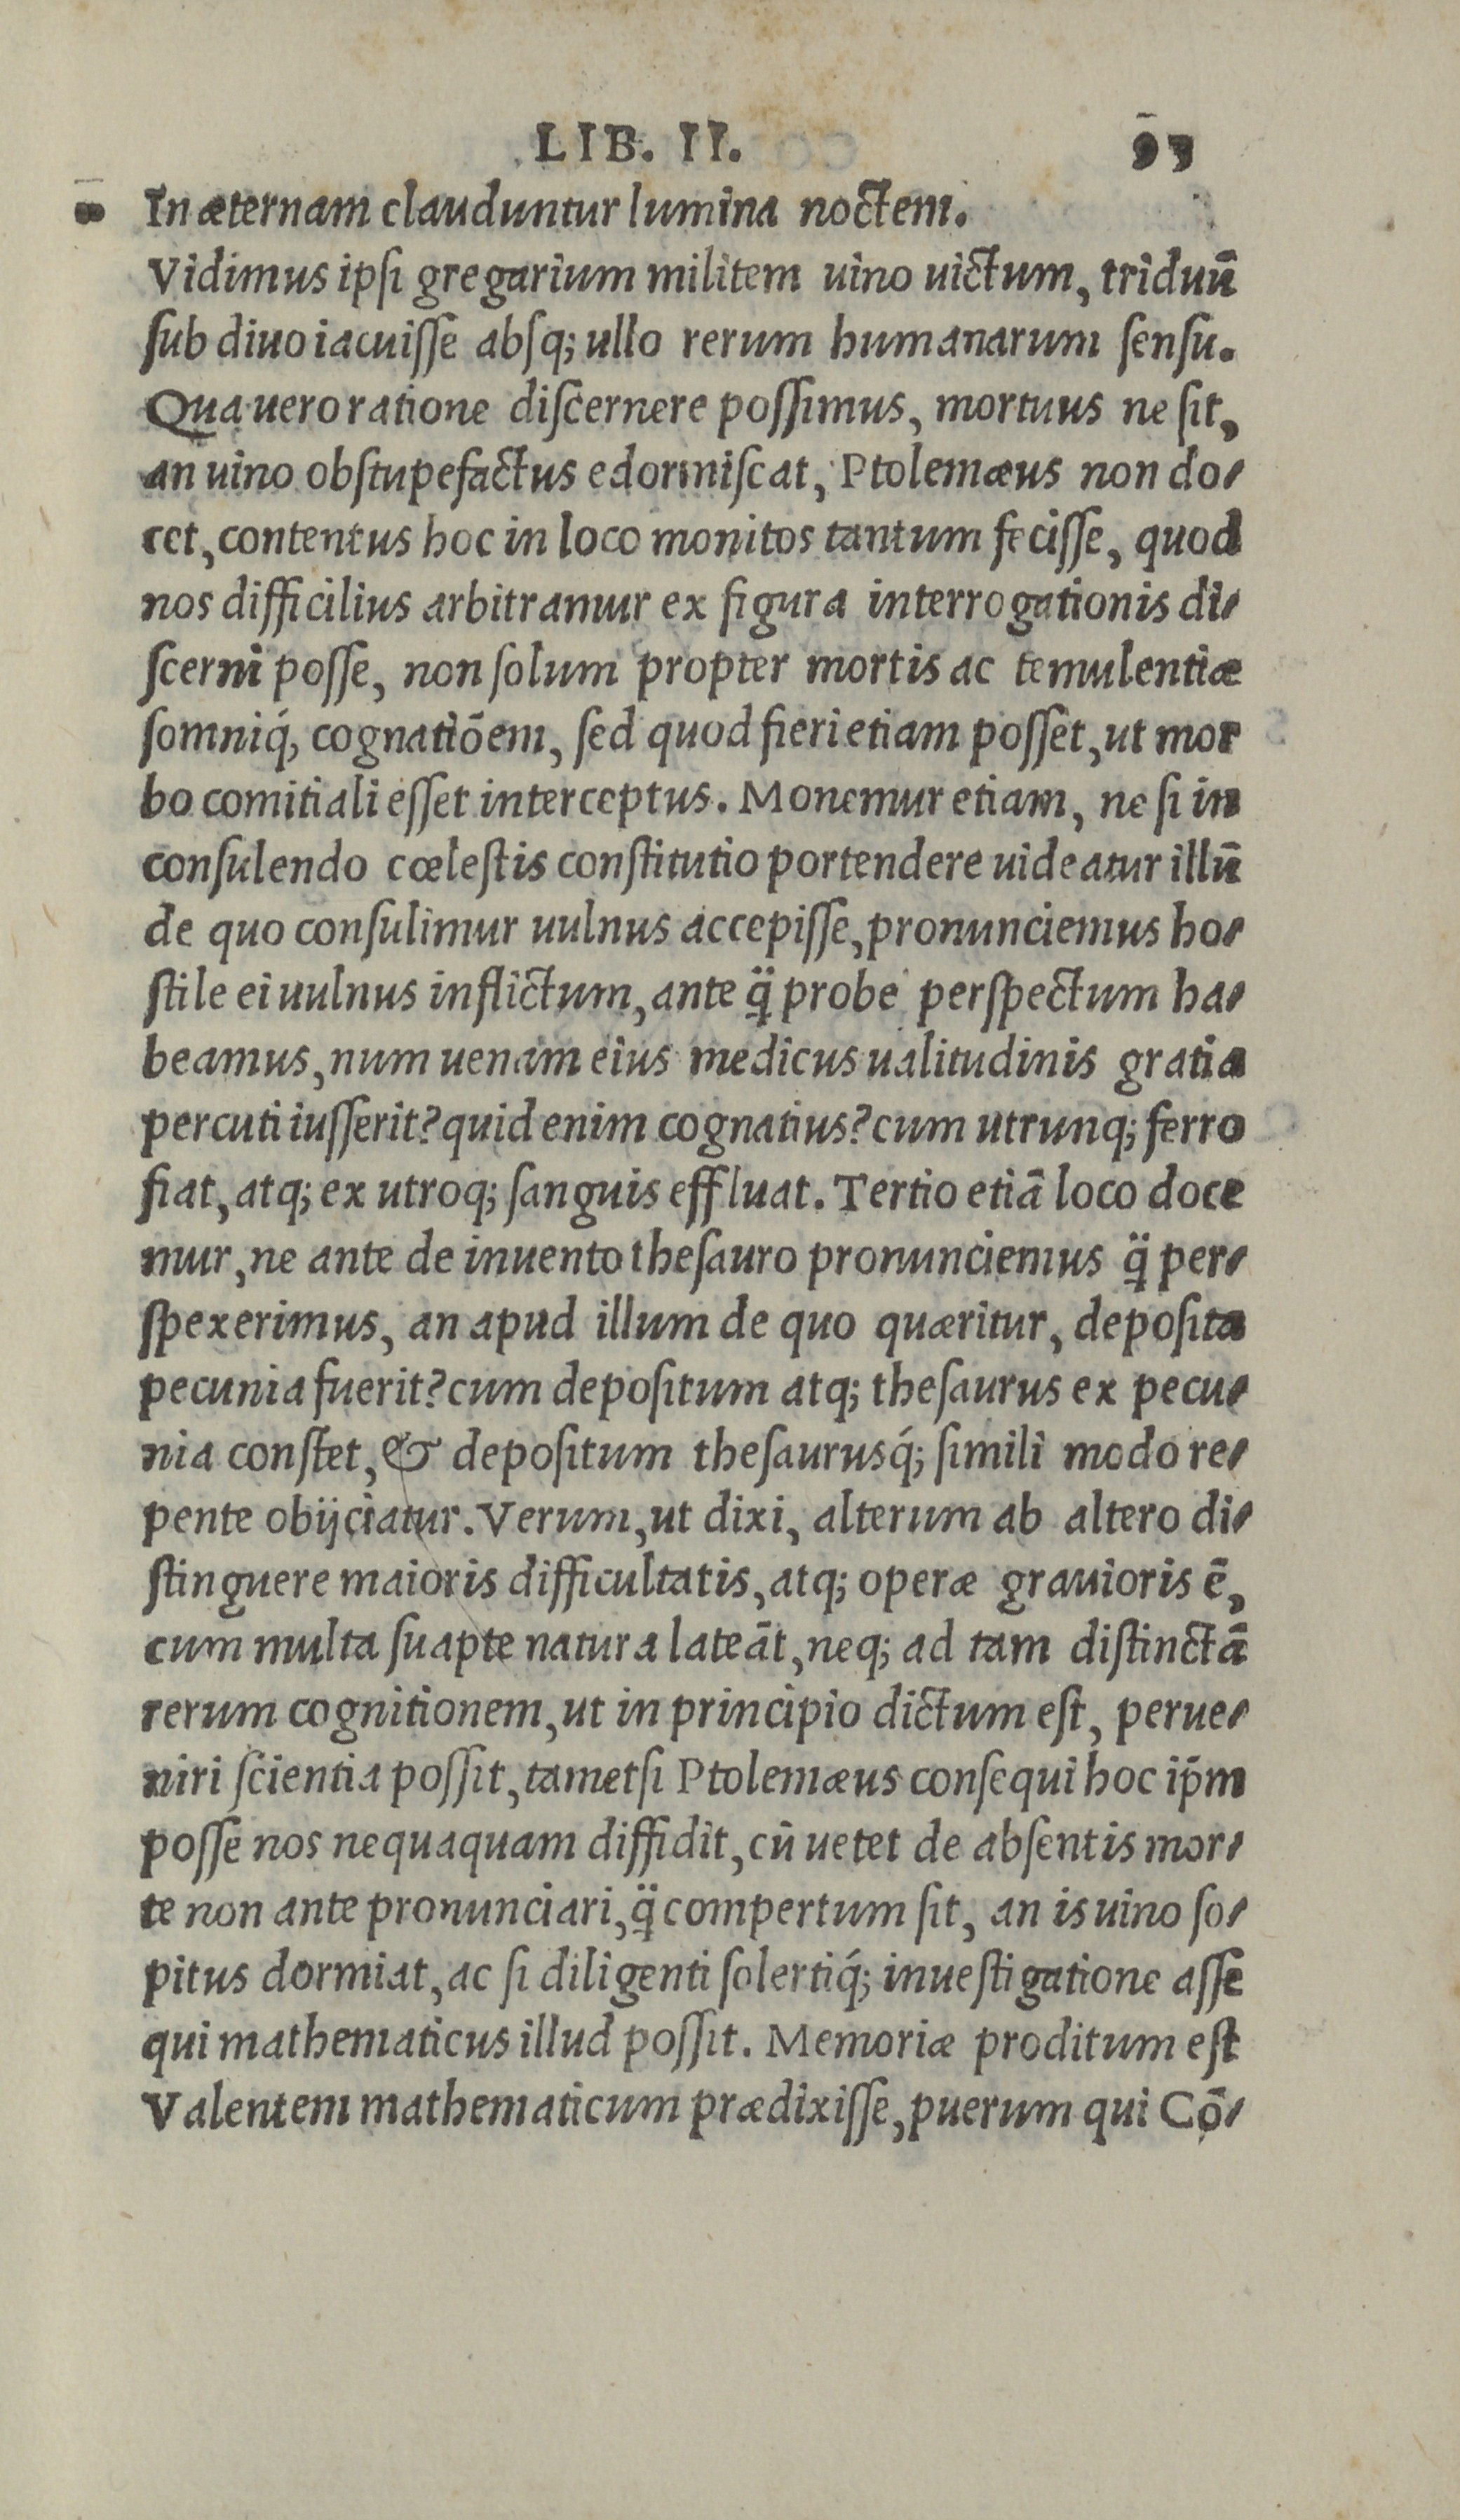 LIB. II. 93
In æternam clauduntur lumina noctem.
Vidimus ipsi gregarium militem uino uictum, triduũ
sub diuo iacuisse absq; ullo rerum humanarum sensu.
Qua uero ratione discernere possimus, mortuus ne sit,
an uino obstupefactus edormiscat, Ptolemæus non do-
cet, contentus hoc in loco monitos tantum fecisse, quod
nos difficilius arbitramur ex figura interrogationis di-
scerni posse, non solum propter mortis ac temulentiæ
somniq́; cognatiõem, sed quod fieri etiam posset, ut mor
bo comitiali esset interceptus. Monemur etiam, ne si in
consulendo cœlestis constitutio portendere uideatur illũ
de quo consulimur uulnus accepisse, pronunciemus ho-
stile ei uulnus inflictum, ante q̈ probe perspectum ha-
beamus, num uenam eius medicus ualitudinis gratia
percuti iusserit? quid enim cognatius? cum utrunq; ferro
fiat, atq; ex utroq; sanguis effluat. Tertio etiã loco doce
mur, ne ante de inuento thesauro pronunciemus q̈ per-
spexerimus, an apud illum de quo quæritur, deposita
pecunia fuerit? cum depositum atq; thesaurus ex pecu-
nia constet, & depositum thesaurusq́; simili modo re-
pente obijciatur. Verum, ut dixi, alterum ab altero di-
stinguere maioris difficultatis, atq; operæ grauioris ẽ,
cum multa suapte natura lateãt, neq; ad tam distinctã
rerum cognitionem, ut in principio dictum est, perue-
niri scientia possit, tametsi Ptolemæus consequi hoc ip̃m
posse nos nequaquam diffidit, cũ uetet de absentis mor-
te non ante pronunciari, q̈ compertum sit, an is uino so-
pitus dormiat, ac si diligenti solertiq́; inuestigatione asse
qui mathematicus illud possit. Memoriæ proditum est
Valentem mathematicum prædixisse, puerum qui Cõ-